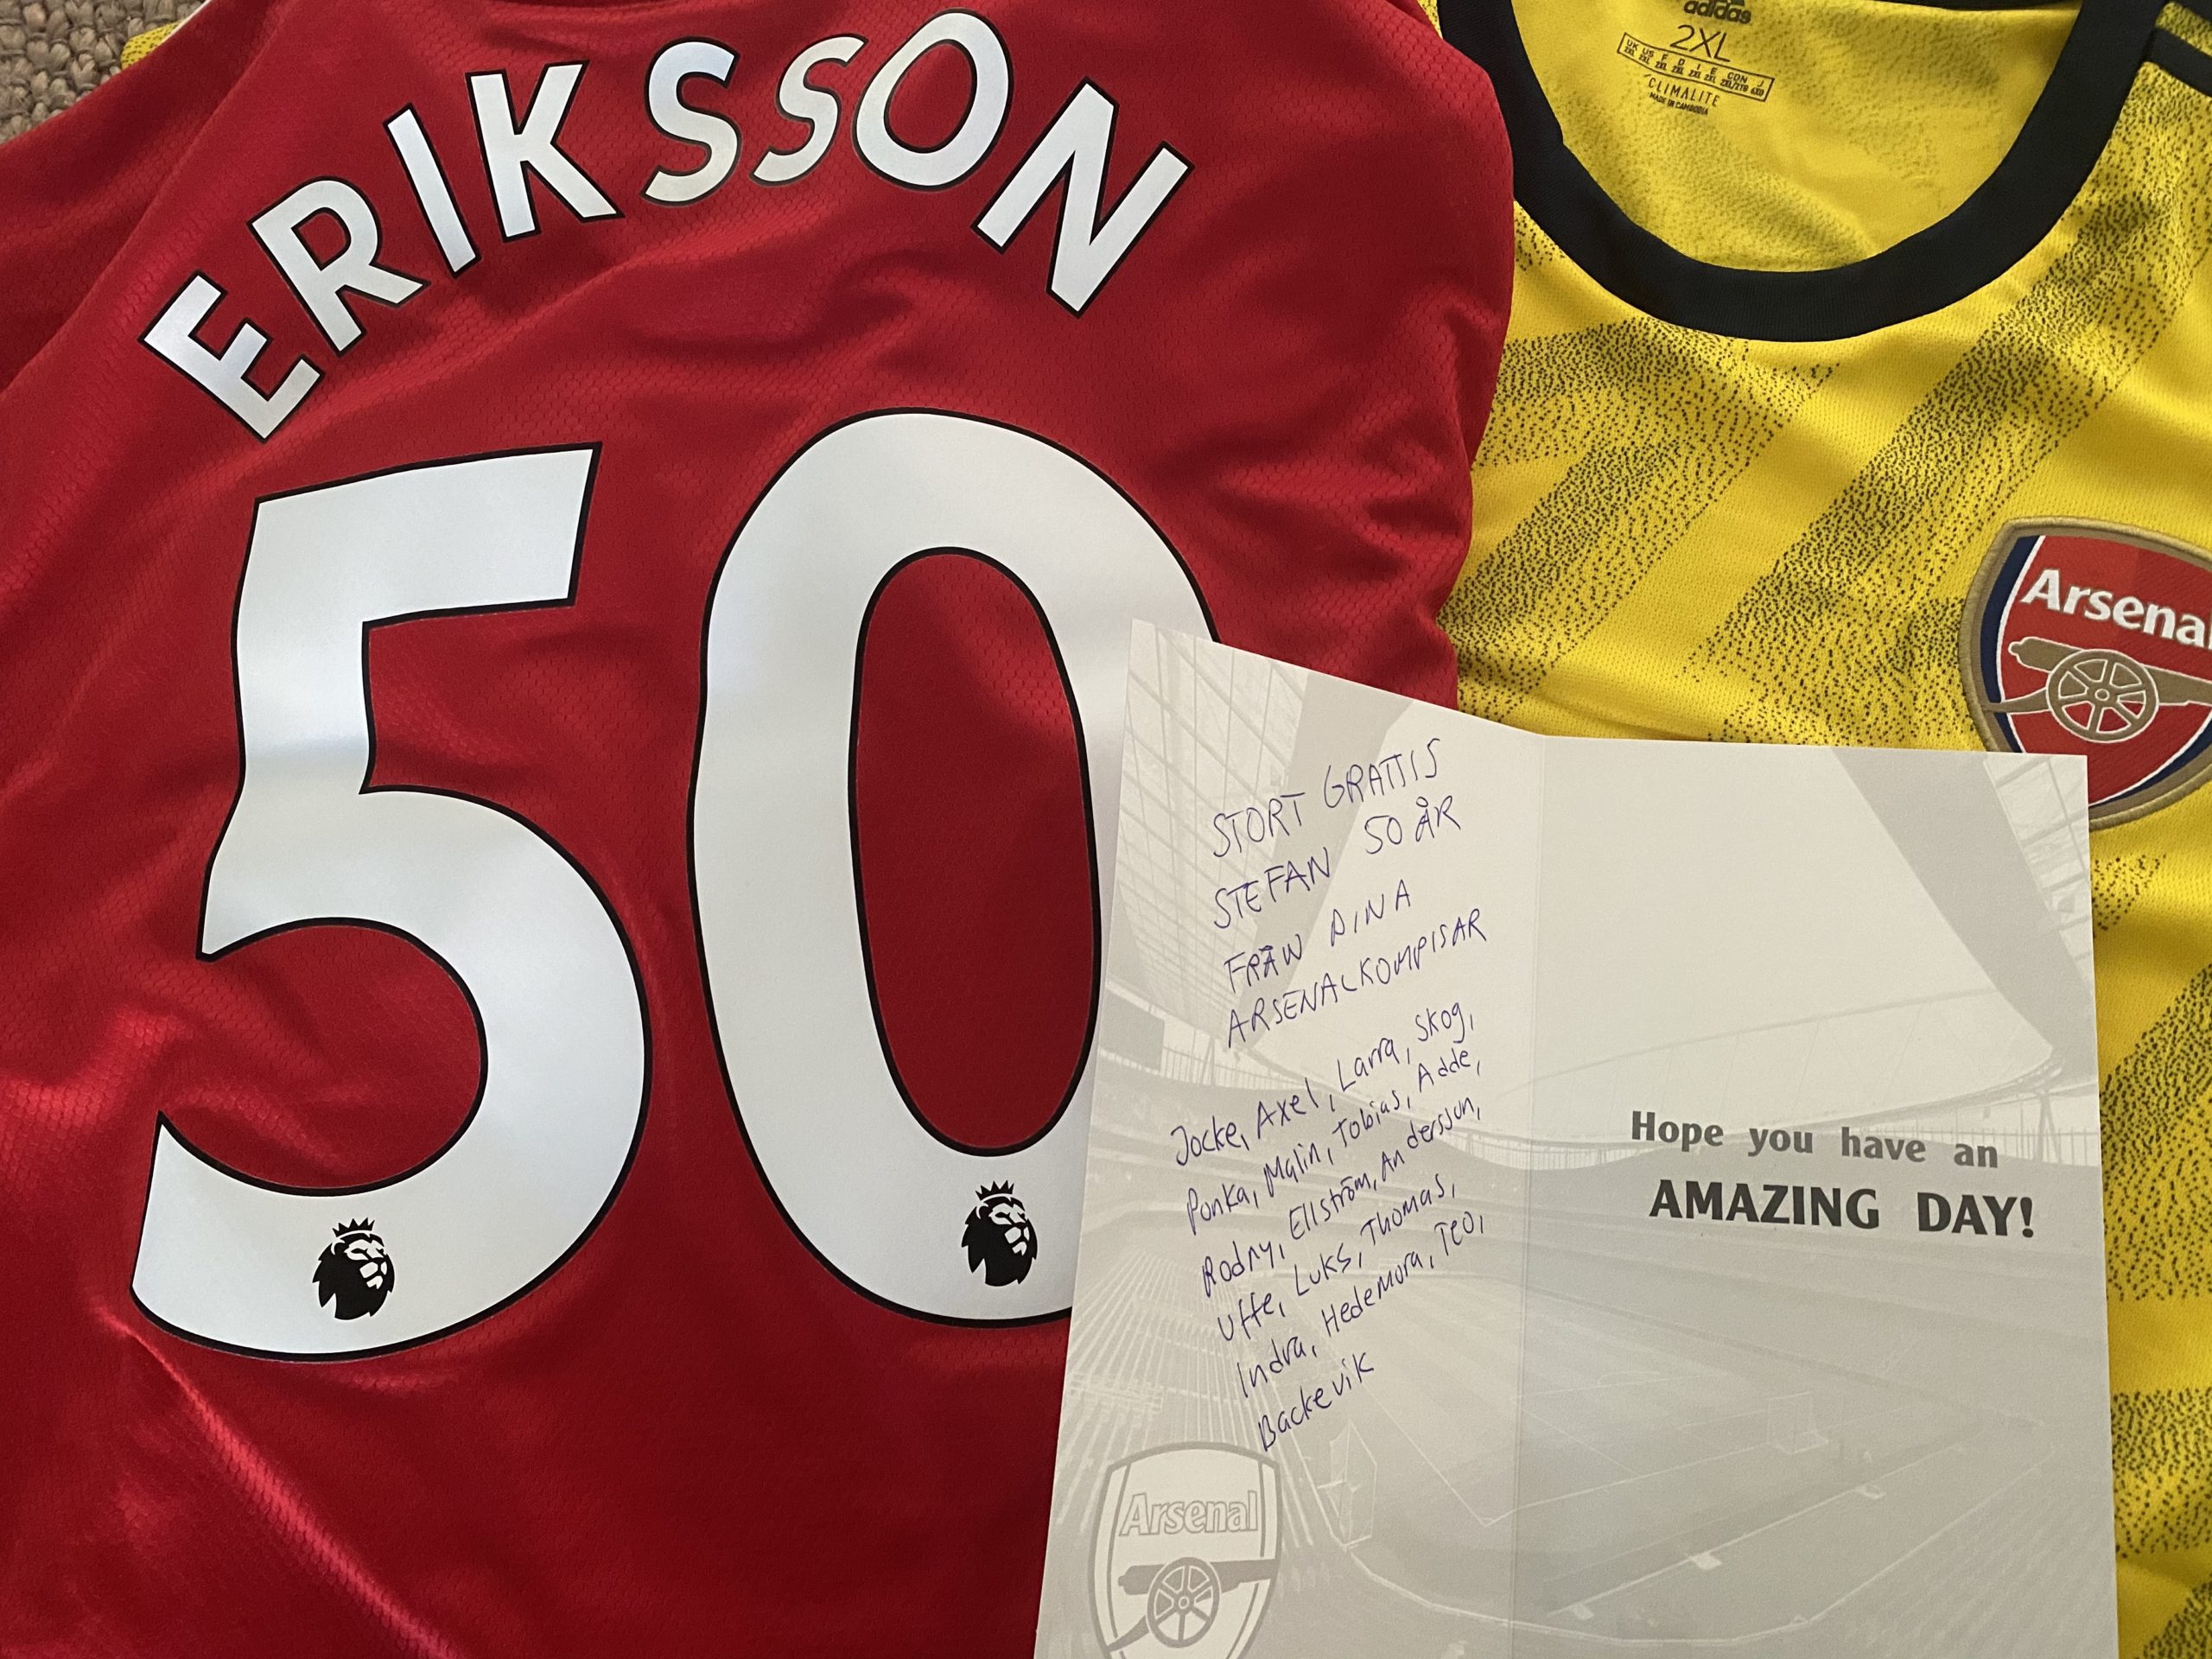 ERIKSSON
50
adidas
2XL
UK US F D I E CON J
2XL 2XL 2XL 2XL 2XL 2XL 2XL/2TG
CLIMALITE
MADE IN CAMBODIA
Arsenal
STORT GRATTIS
STEFAN 50 ÅR
FRÅN DINA
ARSENALKOMPISAR
Jocke, Axel, Larra, Skog,
Ponka, Malin, Tobias, Adde,
Rodny, Ellström, Andersson,
Uffe, Luks, Thomas,
Indra, Hedemora, Teo,
Backevik
Arsenal
Hope you have an
AMAZING DAY!